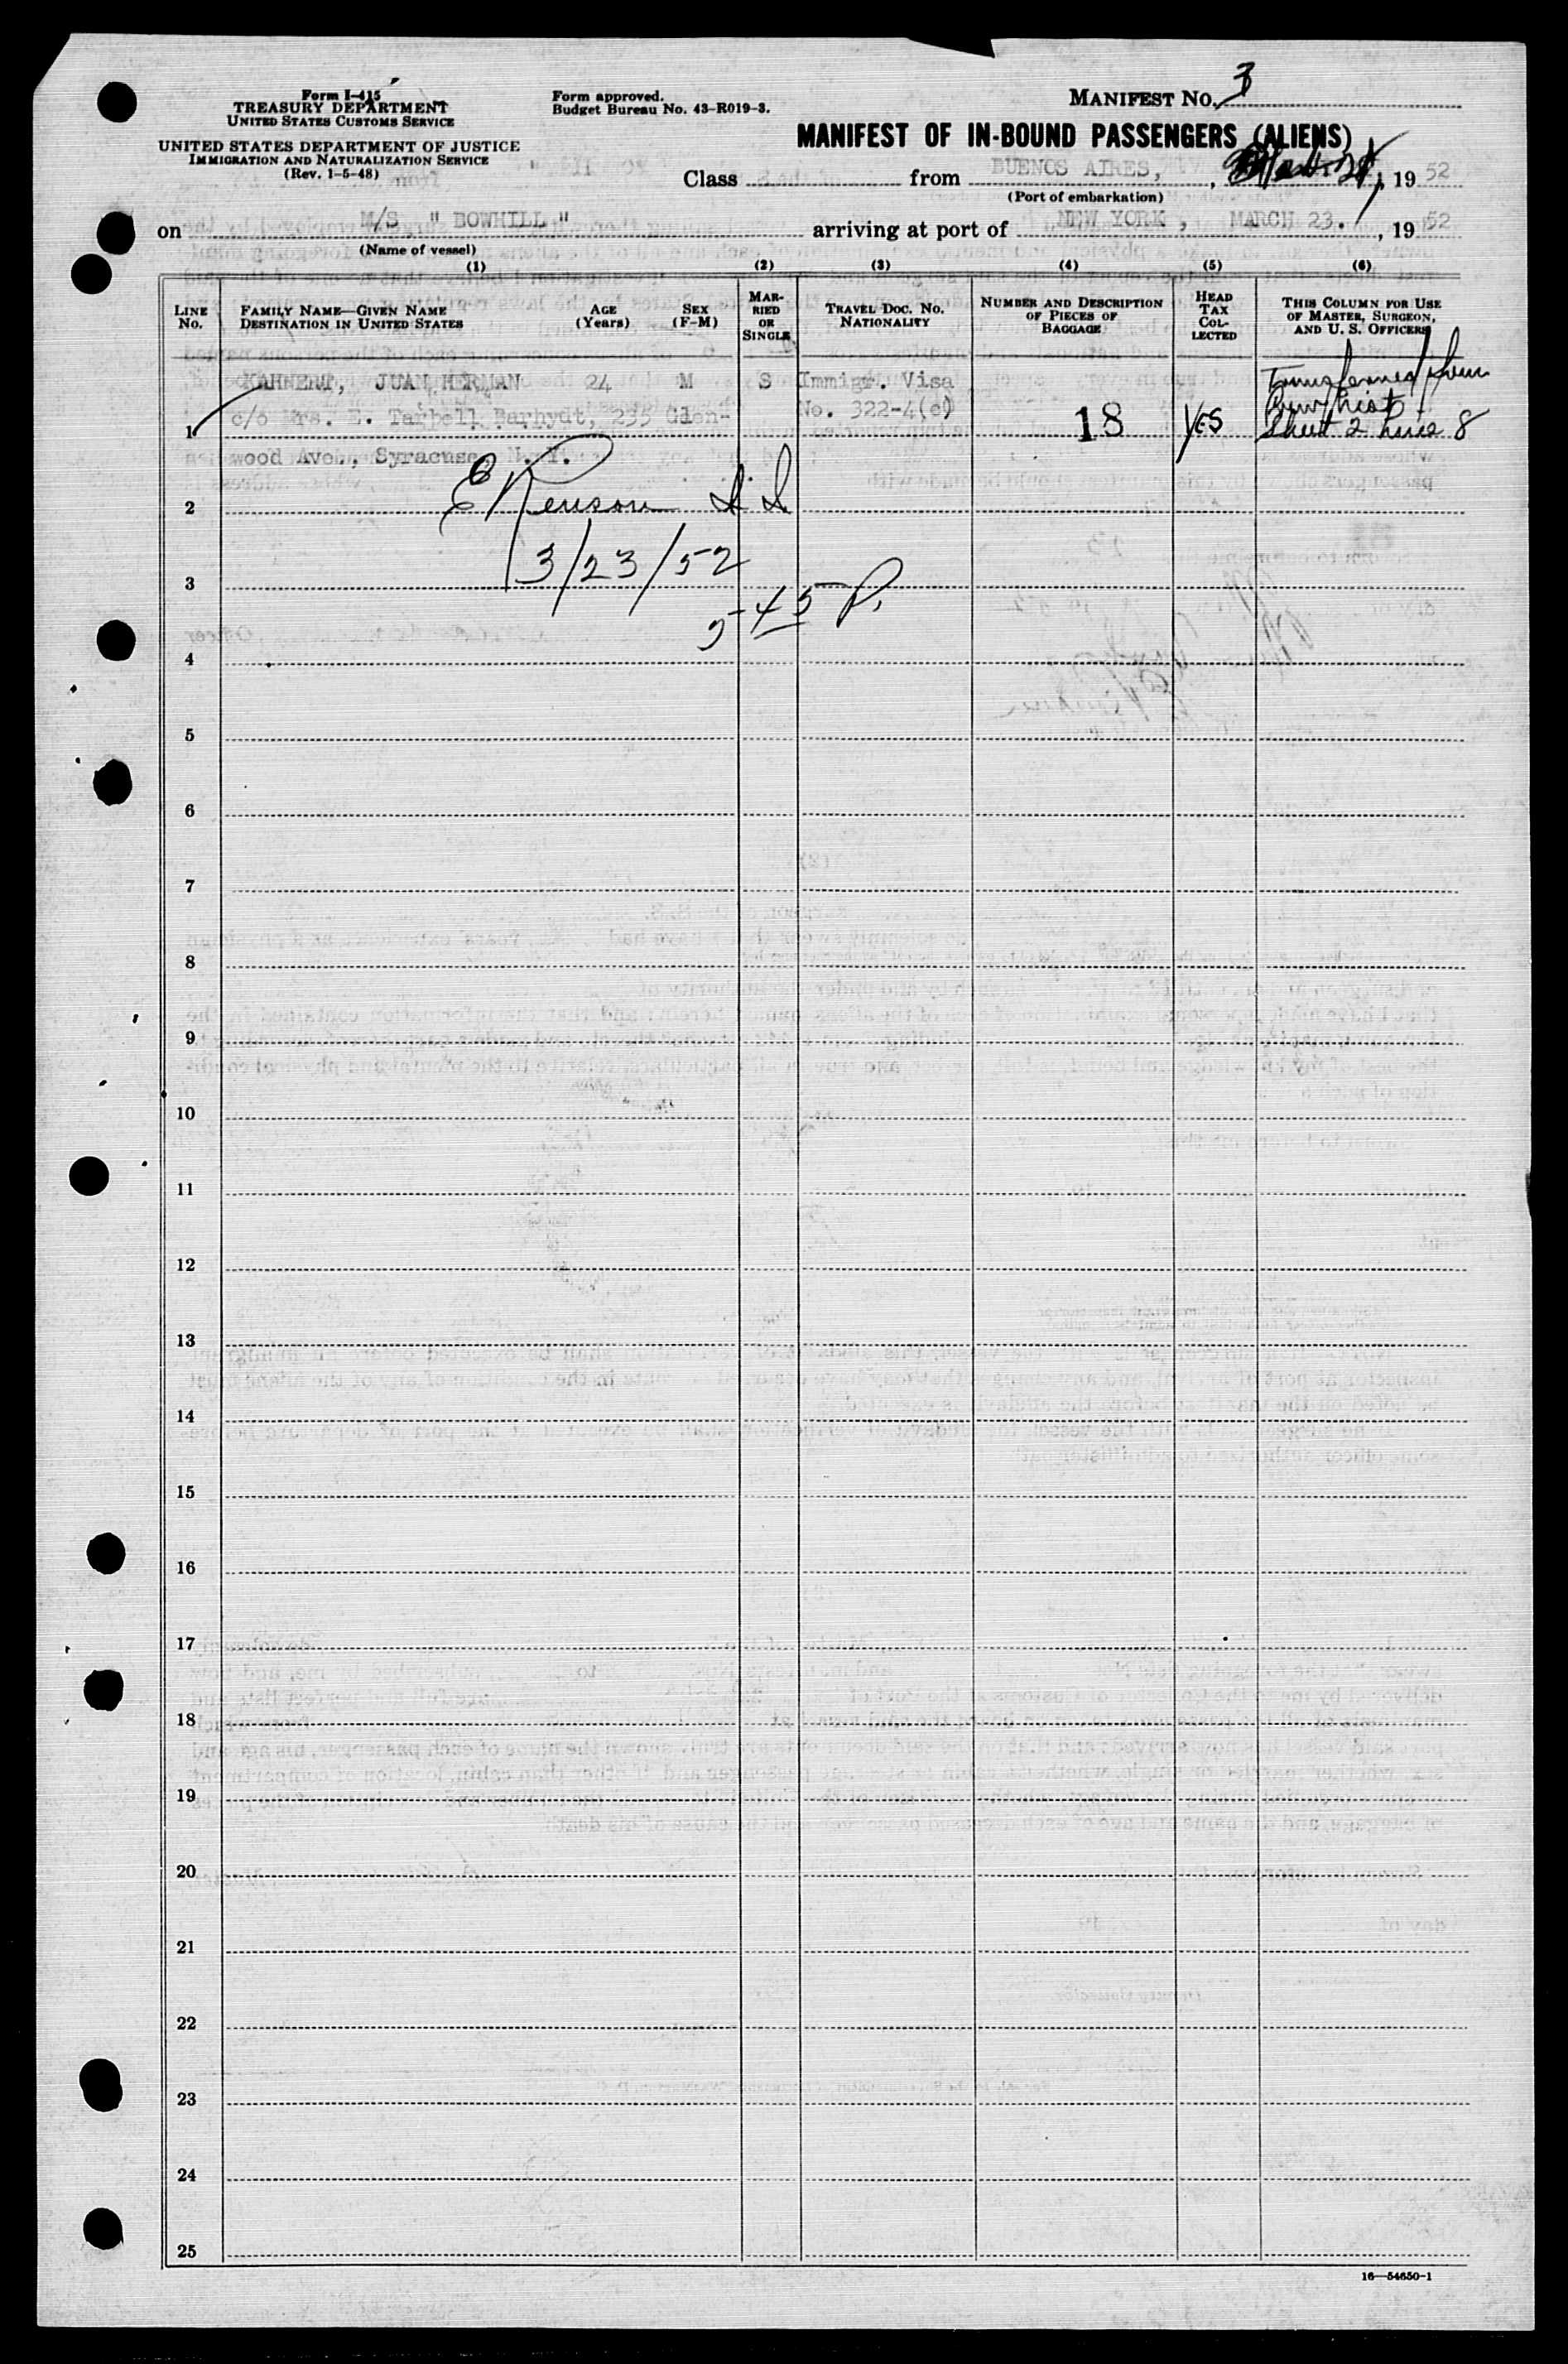 Form I-415
TREASURY DEPARTMENT
UNITED STATES CUSTOMS SERVICE
UNITED STATES DEPARTMENT OF JUSTICE
IMMIGRATION AND NATURALIZATION SERVICE
(Rev. 1-5-48)
Form approved.
Budget Bureau No. 43-R019-3.
MANIFEST NO. 3
MANIFEST OF IN-BOUND PASSENGERS (ALIENS)
Class from BUENOS AIRES, , 19 52
(Port of embarkation)
on M/S " BOWHILL " arriving at port of NEW YORK , MARCH 23. , 19 52
(Name of vessel)
(1) (2) (3) (4) (5) (6)
LINE No.
FAMILY NAME—GIVEN NAME
DESTINATION IN UNITED STATES
AGE (Years)
SEX (F-M)
MARRIED OR SINGLE
TRAVEL DOC. NO. NATIONALITY
NUMBER AND DESCRIPTION OF PIECES OF BAGGAGE
HEAD TAX COLLECTED
THIS COLUMN FOR USE OF MASTER, SURGEON, AND U. S. OFFICERS
KAHNERT, JUAN HERMAN 24 M S Immigr. Visa Transferred from
1 c/o Mrs. E. Tarbell Barhydt, 233 Glen- No. 322-4(c) 18 Yes Crew List
Sheet 2 Line 8
wood Ave., Syracuse, N. Y.
2
3 3/23/52
5 45 P.
4
5
6
7
8
9
10
11
12
13
14
15
16
17
18
19
20
21
22
23
24
25
16—54650-1